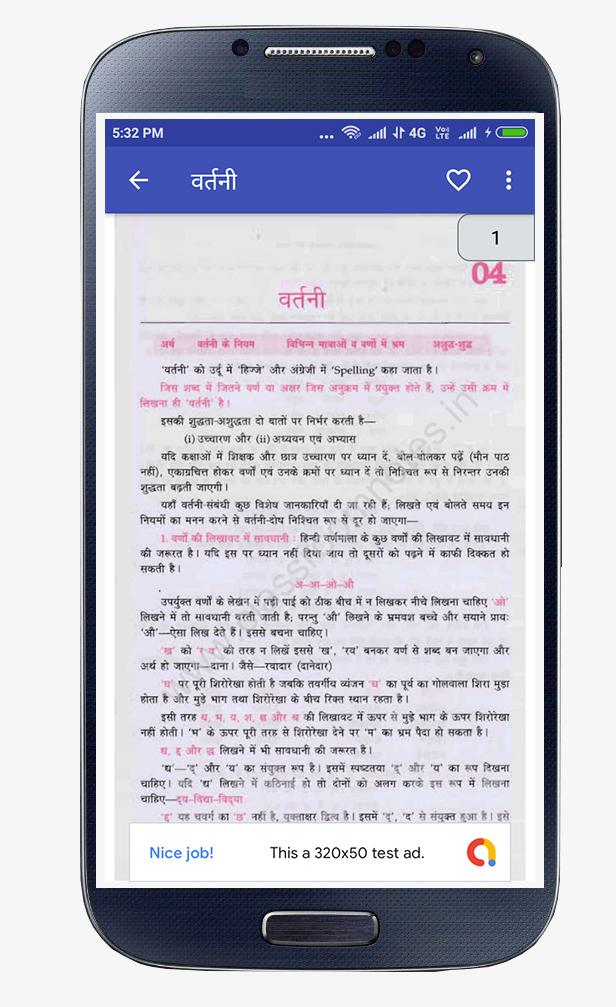 5:32 PM ... 4G Vo)) LTE
वर्तनी
1
04
वर्तनी
अर्थ वर्तनी के नियम विभिन्न मात्राओं व वर्णों में भ्रम अशुद्ध-शुद्ध
'वर्तनी' को उर्दू में 'हिज्जे' और अंग्रेजी में 'Spelling' कहा जाता है।
जिस शब्द में जितने वर्ण या अक्षर जिस अनुक्रम में प्रयुक्त होते हैं, उन्हें उसी क्रम में
लिखना ही 'वर्तनी' है।
इसकी शुद्धता-अशुद्धता दो बातों पर निर्भर करती है—
(i) उच्चारण और (ii) अध्ययन एवं अभ्यास
यदि कक्षाओं में शिक्षक और छात्र उच्चारण पर ध्यान दें, बोल-बोलकर पढ़ें (मौन पाठ
नहीं), एकाग्रचित्त होकर वर्णों एवं उनके क्रमों पर ध्यान दें तो निश्चित रूप से निरन्तर उनकी
शुद्धता बढ़ती जाएगी।
यहाँ वर्तनी-संबंधी कुछ विशेष जानकारियाँ दी जा रही हैं; लिखते एवं बोलते समय इन
नियमों का मनन करने से वर्तनी-दोष निश्चित रूप से दूर हो जाएगा—
1. वर्णों की लिखावट में सावधानी : हिन्दी वर्णमाला के कुछ वर्णों की लिखावट में सावधानी
की जरूरत है। यदि इस पर ध्यान नहीं दिया जाय तो दूसरों को पढ़ने में काफी दिक्कत हो
सकती है।
अ–आ–ओ–औ
उपर्युक्त वर्णों के लेखन में पड़ी पाई को ठीक बीच में न लिखकर नीचे लिखना चाहिए 'ओ'
लिखने में तो सावधानी बरती जाती है; परन्तु 'औ' लिखने के भ्रमवश बच्चे और सयाने प्रायः
'औ'—ऐसा लिख देते हैं। इससे बचना चाहिए।
'ख' को 'र व' की तरह न लिखें इससे 'ख', 'रव' बनकर वर्ण से शब्द बन जाएगा और
अर्थ हो जाएगा—दाना। जैसे—रवादार (दानेदार)
'घ' पर पूरी शिरोरेखा होती है जबकि तवर्गीय व्यंजन 'ध' का पूर्व का गोलवाला शिरा मुड़ा
होता है और मुड़े भाग तथा शिरोरेखा के बीच रिक्त स्थान रहता है।
इसी तरह थ, भ, य, श, क्ष और श्र की लिखावट में ऊपर से मुड़े भाग के ऊपर शिरोरेखा
नहीं होती। 'भ' के ऊपर पूरी तरह से शिरोरेखा देने पर 'म' का भ्रम पैदा हो सकता है।
द्य, द्द और द्ध लिखने में भी सावधानी की जरूरत है।
'द्य'—'द्' और 'य' का संयुक्त रूप है। इसमें स्पष्टतया 'द्' और 'य' का रूप दिखना
चाहिए। यदि 'द्य' लिखने में कठिनाई हो तो दोनों को अलग करके इस रूप में लिखना
चाहिए—द्‌य–विद्या–विद्‌या
'द्द' यह चवर्ग का 'छ' नहीं है, युक्ताक्षर द्वित्व है। इसमें 'द्', 'द' से संयुक्त हुआ है। इसे
Nice job! This a 320x50 test ad.